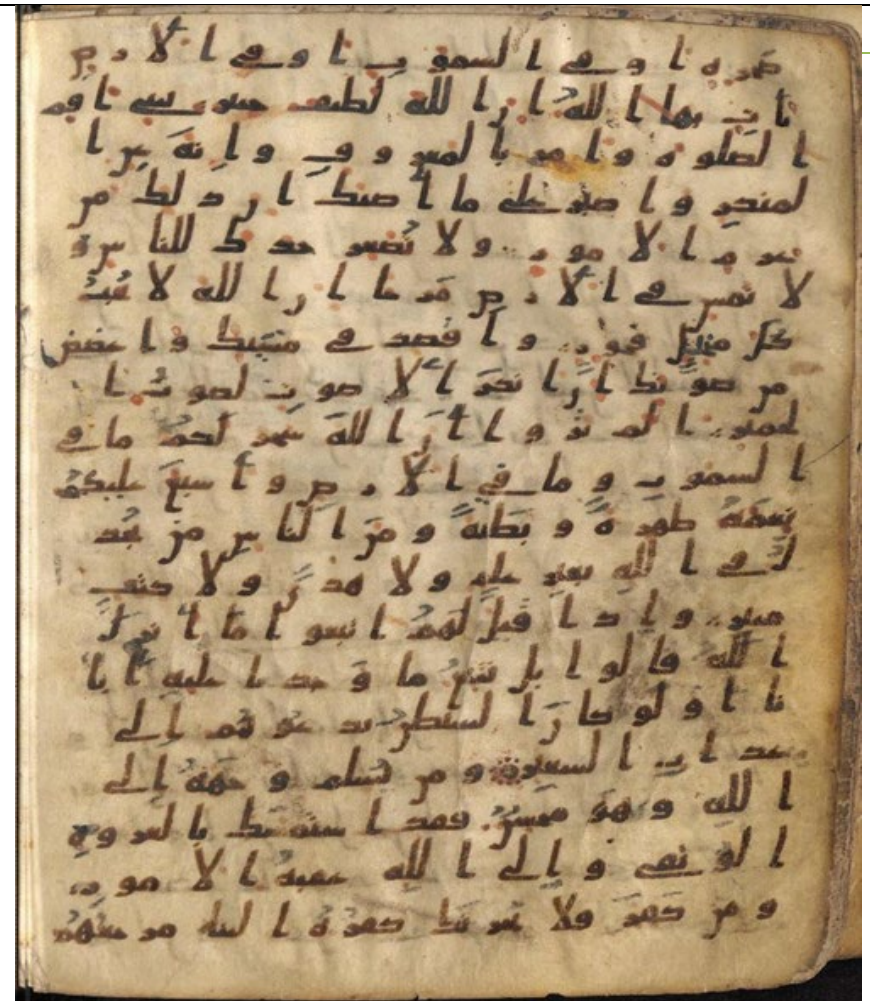 صخرة او في السموت او في الارض
يات بها الله ان الله لطيف خبير يبني اقم
الصلوة وامر بالمعروف وانه عن ا
لمنكر واصبر على ما اصبك ان ذلك من
عزم الامور ولا تصعر خدك للناس و
لا تمش في الارض مرحا ان الله لا يحب
كل مختل فخور واقصد في مشيك واغضض
من صوتك ان انكر الاصوت لصوت ا
لحمير الم تروا ان الله سخر لكم ما في
السموت وما في الارض واسبغ عليكم
نعمه ظهرة وبطنة ومن الناس من يجد
ل في الله بغير علم ولا هدى ولا كتب
منير واذا قيل لهم اتبعوا ما انزل
الله قالوا بل نتبع ما وجدنا عليه ابا
نا اولو كان الشيطن يدعوهم الى
عذاب السعير ومن يسلم وجهه الى
الله وهو محسن فقد استمسك بالعروة
الوثقى والى الله عقبة الامور
ومن كفر فلا يحزنك كفره الينا مرجعهم